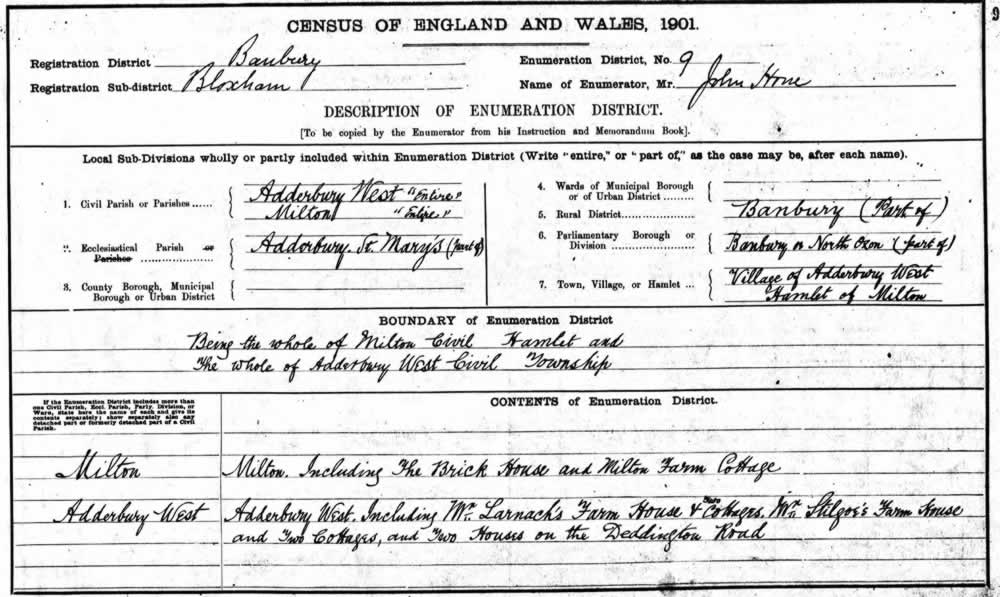 9
CENSUS OF ENGLAND AND WALES, 1901.
Registration District Banbury
Enumeration District, No. 9
Registration Sub-district Bloxham
Name of Enumerator, Mr. John Hone
DESCRIPTION OF ENUMERATION DISTRICT.
[To be copied by the Enumerator from his Instruction and Memorandum Book].
Local Sub-Divisions wholly or partly included within Enumeration District (Write "entire," or "part of," as the case may be, after each name).
1. Civil Parish or Parishes......
Adderbury West "Entire"
Milton "Entire"
2. Ecclesiastical Parish or
Parishes ..................
Adderbury. St. Mary's (part of)
3. County Borough, Municipal
Borough or Urban District
4. Wards of Municipal Borough
or of Urban District .........
5. Rural District......................
Banbury (Part of)
6. Parliamentary Borough or
Division ........................
Banbury or North Oxon (part of)
7. Town, Village, or Hamlet ...
Village of Adderbury West
Hamlet of Milton
BOUNDARY of Enumeration District
Being the whole of Milton Civil Hamlet and
The whole of Adderbury West Civil Township
If the Enumeration District includes more than
one Civil Parish, Eccl. Parish, Parly. Division, or
Ward, state here the name of each and give its
contents separately; show separately also any
detached part or formerly detached part of a Civil
Parish.
CONTENTS of Enumeration District.
Milton
Milton. Including The Brick House and Milton Farm Cottage
Adderbury West
Adderbury West. Including Mr. Larnach's Farm House & Two Cottages. Mr. Stilgoe's Farm House
and Two Cottages, and Two Houses on the Deddington Road